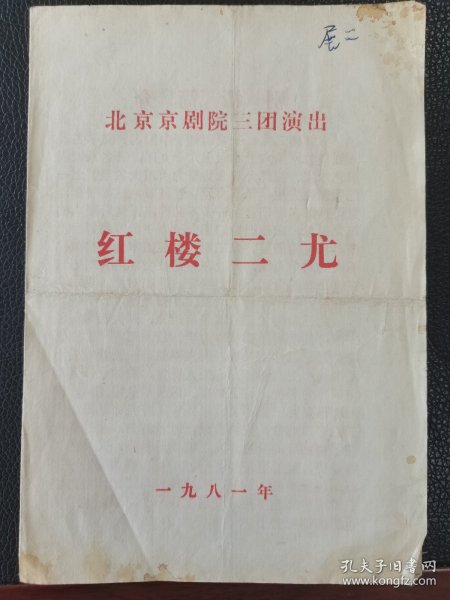 展二
北京京剧院三团演出
红楼二尤
一九八一年
孔夫子旧书网
www.kongfz.com